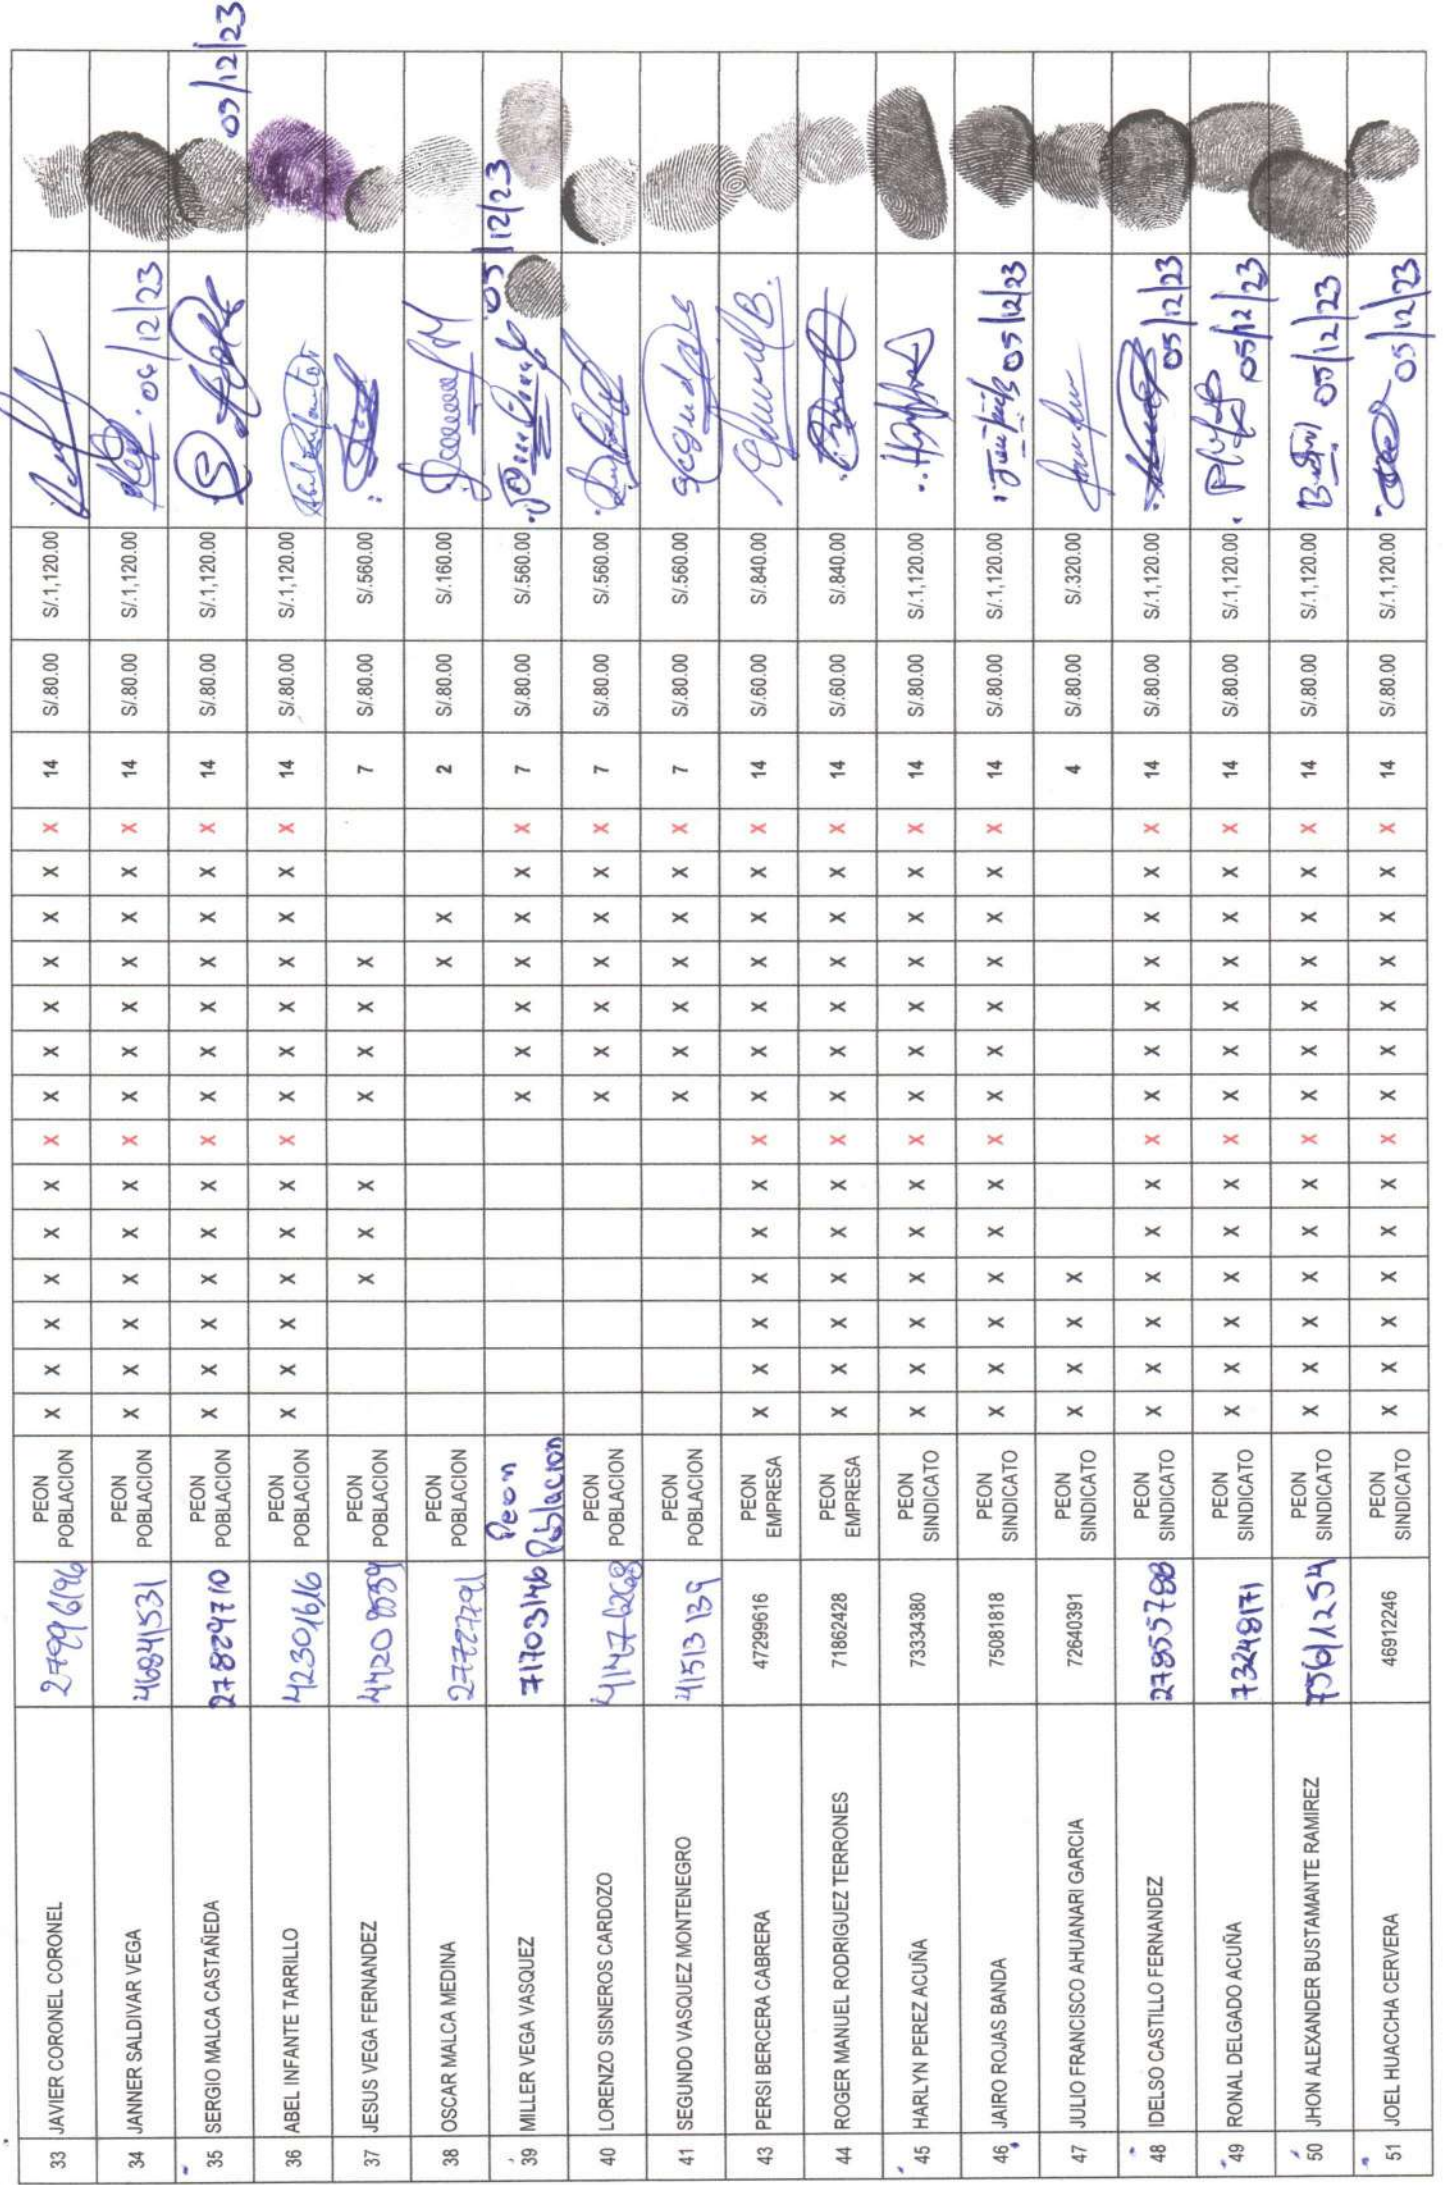 33 JAVIER CORONEL CORONEL 27996196 PEON POBLACION X X X X X X X X X X X X X X 14 S/.80.00 S/.1,120.00
34 JANNER SALDIVAR VEGA 46841531 PEON POBLACION X X X X X X X X X X X X X X 14 S/.80.00 S/.1,120.00 06/12/23
35 SERGIO MALCA CASTAÑEDA 27829710 PEON POBLACION X X X X X X X X X X X X X X 14 S/.80.00 S/.1,120.00 05/12/23
36 ABEL INFANTE TARRILLO 42301616 PEON POBLACION X X X X X X X X X X X X X X 14 S/.80.00 S/.1,120.00
37 JESUS VEGA FERNANDEZ PEON POBLACION X X X X X X X 7 S/.80.00 S/.560.00
38 OSCAR MALCA MEDINA PEON POBLACION X X 2 S/.80.00 S/.160.00
39 MILLER VEGA VASQUEZ 71703146 Peon Poblacion X X X X X X X 7 S/.80.00 S/.560.00 05/12/23
40 LORENZO SISNEROS CARDOZO PEON POBLACION X X X X X X X 7 S/.80.00 S/.560.00
41 SEGUNDO VASQUEZ MONTENEGRO 41513139 PEON POBLACION X X X X X X X 7 S/.80.00 S/.560.00
43 PERSI BERCERA CABRERA 47299616 PEON EMPRESA X X X X X X X X X X X X X X 14 S/.60.00 S/.840.00
44 ROGER MANUEL RODRIGUEZ TERRONES 71862428 PEON EMPRESA X X X X X X X X X X X X X X 14 S/.60.00 S/.840.00
45 HARLYN PEREZ ACUÑA 73334380 PEON SINDICATO X X X X X X X X X X X X X X 14 S/.80.00 S/.1,120.00
46 JAIRO ROJAS BANDA 75081818 PEON SINDICATO X X X X X X X X X X X X X X 14 S/.80.00 S/.1,120.00 05/12/23
47 JULIO FRANCISCO AHUANARI GARCIA 72640391 PEON SINDICATO X X X X 4 S/.80.00 S/.320.00
48 IDELSO CASTILLO FERNANDEZ 27855788 PEON SINDICATO X X X X X X X X X X X X X X 14 S/.80.00 S/.1,120.00 05/12/23
49 RONAL DELGADO ACUÑA 73248171 PEON SINDICATO X X X X X X X X X X X X X X 14 S/.80.00 S/.1,120.00 05/12/23
50 JHON ALEXANDER BUSTAMANTE RAMIREZ 75611254 PEON SINDICATO X X X X X X X X X X X X X X 14 S/.80.00 S/.1,120.00 05/12/23
51 JOEL HUACCHA CERVERA 46912246 PEON SINDICATO X X X X X X X X X X X X X X 14 S/.80.00 S/.1,120.00 05/12/23